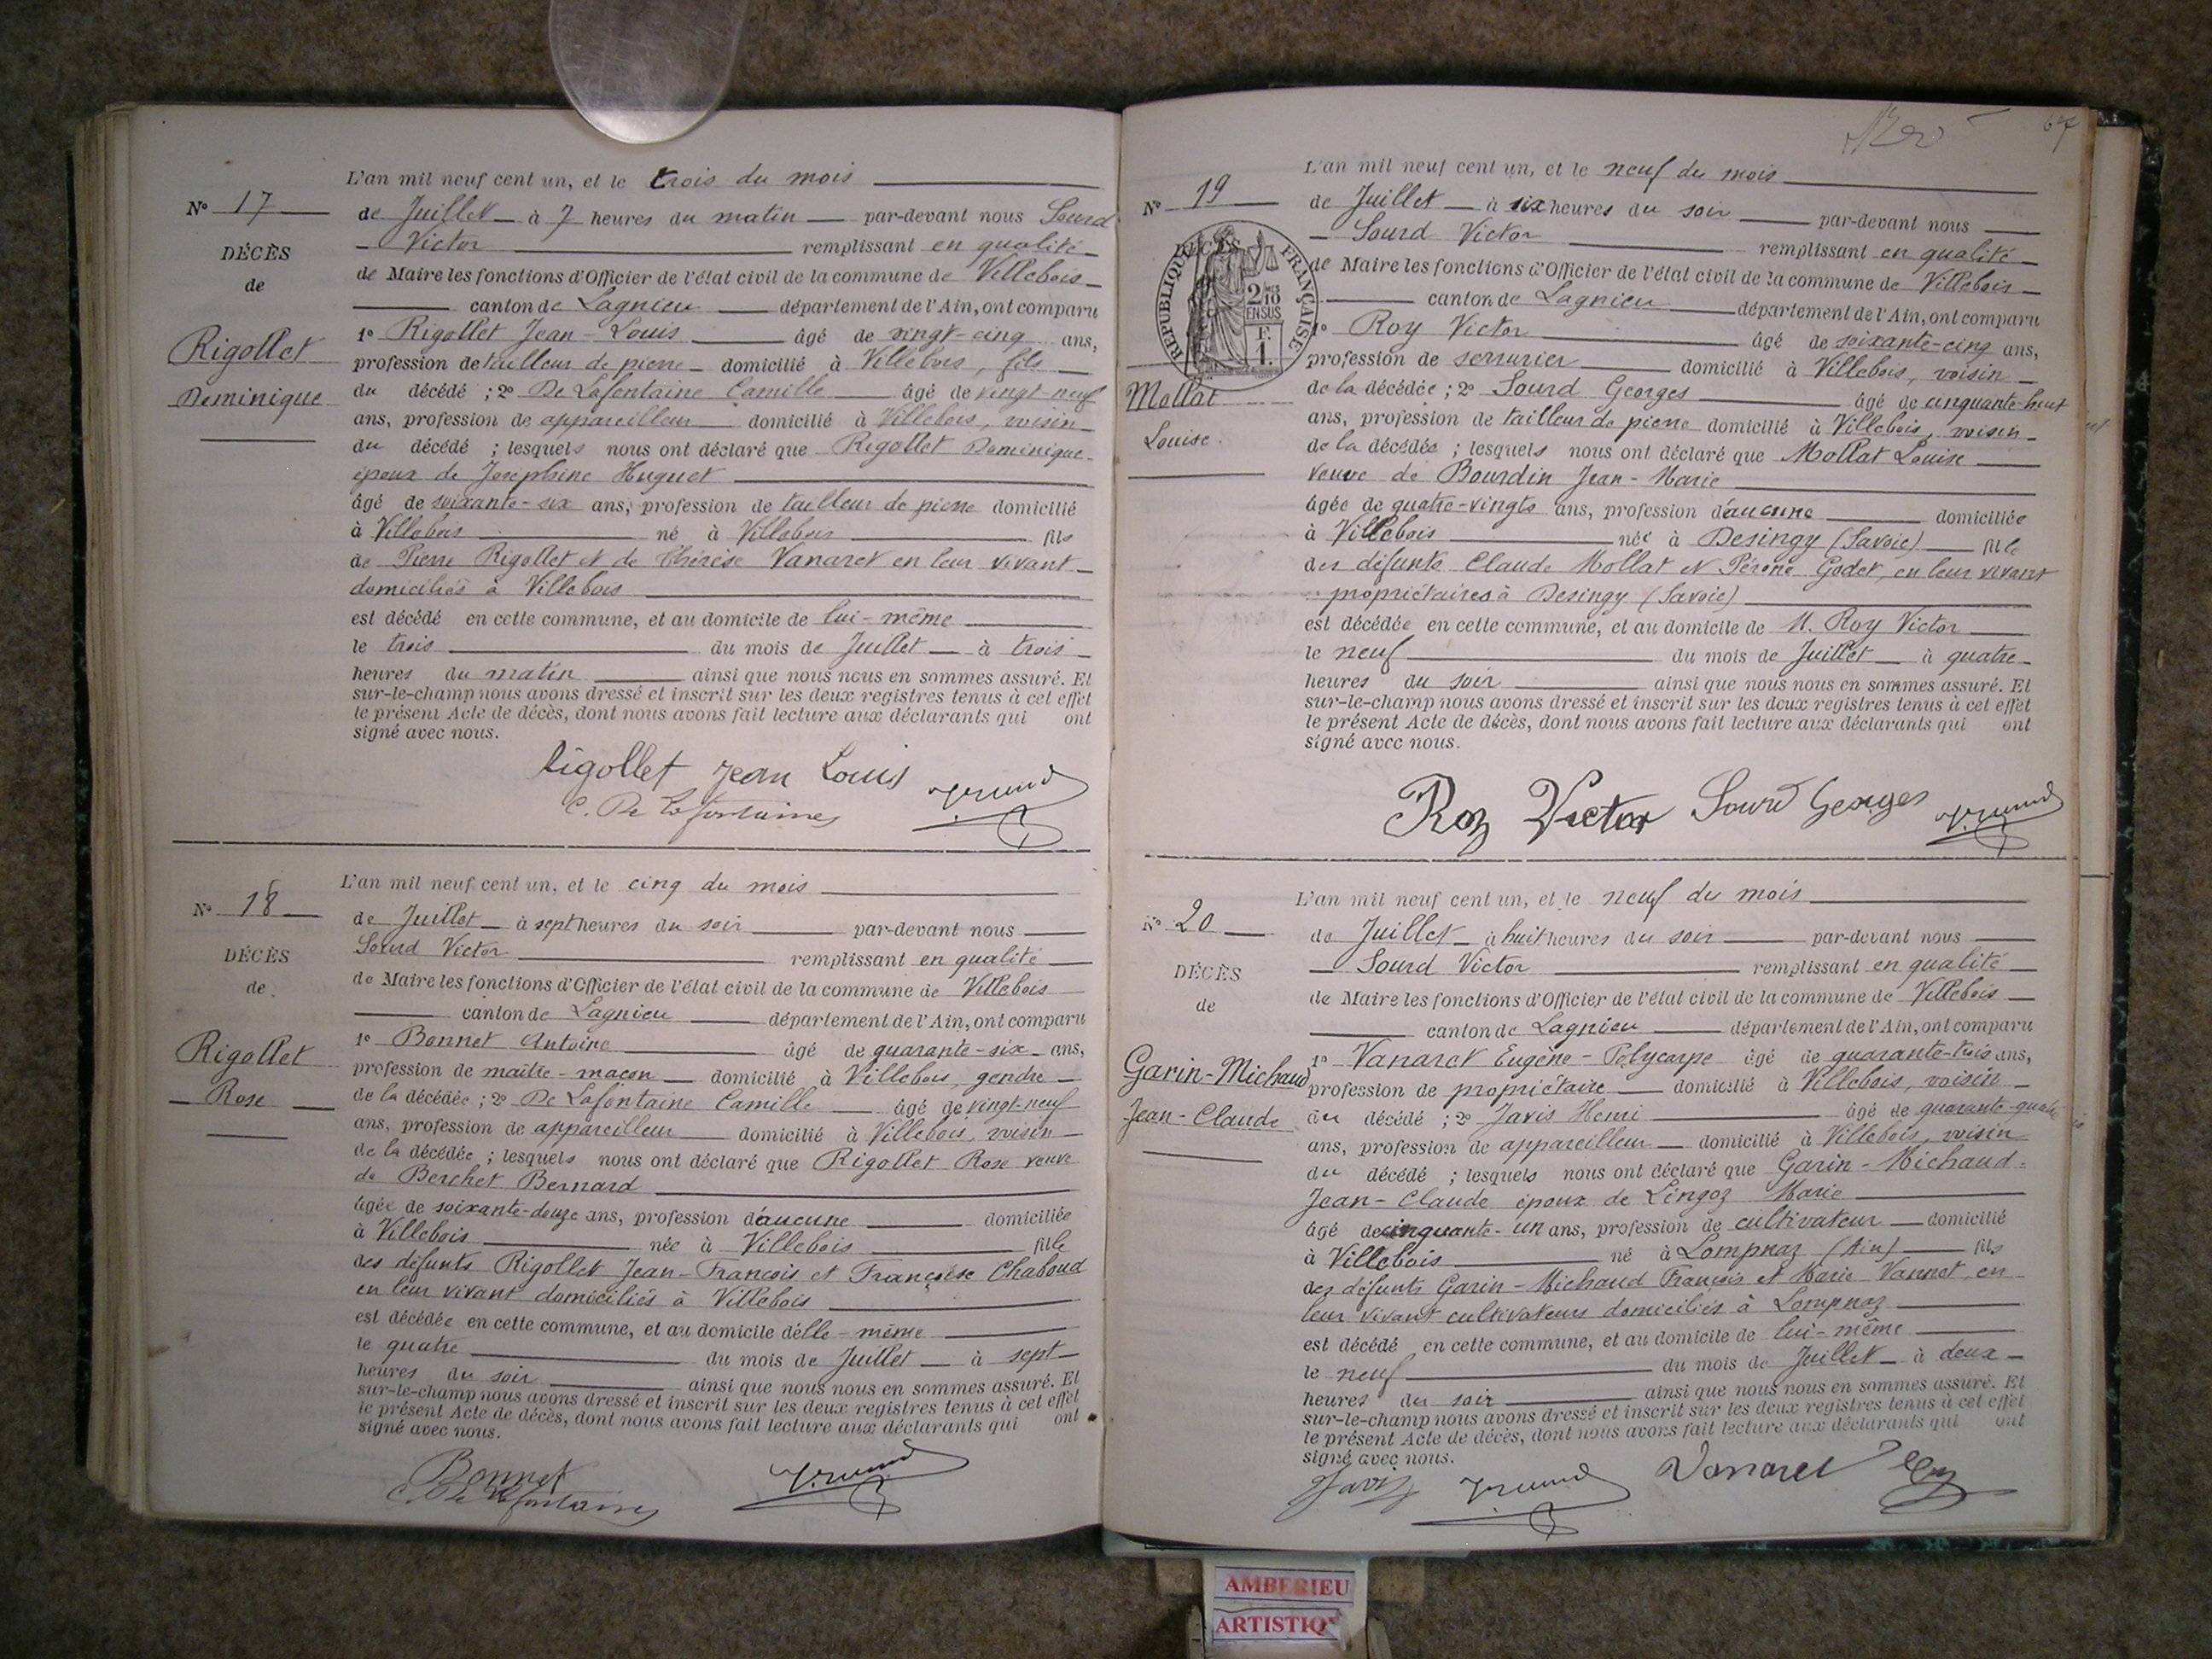 L'an mil neuf cent un, et le trois du mois
N° 17
de Juillet à 7 heures du matin par-devant nous Sourd
Victor remplissant en qualité
DÉCÈS
de
de Maire les fonctions d'Officier de l'état civil de la commune de Villebois
canton de Lagnieu département de l'Ain, ont comparu
Rigollet
Dominique
1° Rigollet Jean-Louis âgé de vingt-cinq ans,
profession de tailleur de pierre domicilié à Villebois, fils
du décédé ; 2° De Lafontaine Camille âgé de vingt-neuf
ans, profession de appareilleur domicilié à Villebois, voisin
du décédé ; lesquels nous ont déclaré que Rigollet Dominique
époux de Joséphine Huguet
âgé de soixante-six ans, profession de tailleur de pierre domicilié
à Villebois né à Villebois fils
de Pierre Rigollet et de Thérèse Vanaret en leur vivant
domiciliés à Villebois
est décédé en cette commune, et au domicile de lui-même
le trois du mois de Juillet à trois
heures du matin ainsi que nous nous en sommes assuré. Et
sur-le-champ nous avons dressé et inscrit sur les deux registres tenus à cet effet
le présent Acte de décès, dont nous avons fait lecture aux déclarants qui ont
signé avec nous.
Rigollet Jean Louis
C. De Lafontaine
L'an mil neuf cent un, et le cinq du mois
N° 18
de Juillet à sept heures du soir par-devant nous
Sourd Victor remplissant en qualité
DÉCÈS
de
de Maire les fonctions d'Officier de l'état civil de la commune de Villebois
canton de Lagnieu département de l'Ain, ont comparu
Rigollet
Rose
1° Bonnet Antoine âgé de quarante-six ans,
profession de maître-maçon domicilié à Villebois, gendre
de la décédée ; 2° De Lafontaine Camille âgé de vingt-neuf
ans, profession de appareilleur domicilié à Villebois, voisin
de la décédée ; lesquels nous ont déclaré que Rigollet Rose veuve
de Berchet Bernard
âgée de soixante-douze ans, profession d'aucune domiciliée
à Villebois née à Villebois fille
des défunts Rigollet Jean-François et Françoise Chaboud
en leur vivant domiciliés à Villebois
est décédée en cette commune, et au domicile d'elle-même
le quatre du mois de Juillet à sept
heures du soir ainsi que nous nous en sommes assuré. Et
sur-le-champ nous avons dressé et inscrit sur les deux registres tenus à cet effet
le présent Acte de décès, dont nous avons fait lecture aux déclarants qui ont
signé avec nous.
Bonnet
C. De Lafontaine
67
L'an mil neuf cent un, et le neuf du mois
N° 19
de Juillet à six heures du soir par-devant nous
Sourd Victor remplissant en qualité
DÉCÈS
RÉPUBLIQUE FRANÇAISE
2/10 EN SUS
F. 1.
de Maire les fonctions d'Officier de l'état civil de la commune de Villebois
canton de Lagnieu département de l'Ain, ont comparu
Mollat
Louise.
1° Roy Victor âgé de soixante-cinq ans,
profession de serrurier domicilié à Villebois, voisin
de la décédée ; 2° Sourd Georges âgé de cinquante-huit
ans, profession de tailleur de pierre domicilié à Villebois, voisin
de la décédée ; lesquels nous ont déclaré que Mollat Louise
veuve de Bourdin Jean-Marie
âgée de quatre-vingts ans, profession d'aucune domiciliée
à Villebois née à Desingy (Savoie) fille
des défunts Claude Mollat et Pérone Godet, en leur vivant
propriétaires à Desingy (Savoie)
est décédée en cette commune, et au domicile de M. Roy Victor
le neuf du mois de Juillet à quatre
heures du soir ainsi que nous nous en sommes assuré. Et
sur-le-champ nous avons dressé et inscrit sur les deux registres tenus à cet effet
le présent Acte de décès, dont nous avons fait lecture aux déclarants qui ont
signé avec nous.
Roy Victor Sourd Georges
L'an mil neuf cent un, et le neuf du mois
N° 20
de Juillet à huit heures du soir par-devant nous
Sourd Victor remplissant en qualité
DÉCÈS
de
de Maire les fonctions d'Officier de l'état civil de la commune de Villebois
canton de Lagnieu département de l'Ain, ont comparu
Garin-Michaud
Jean-Claude
1° Vanaret Eugène-Polycarpe âgé de quarante-trois ans,
profession de propriétaire domicilié à Villebois, voisin
du décédé ; 2° Javis Henri âgé de quarante-quatre
ans, profession de appareilleur domicilié à Villebois, voisin
du décédé ; lesquels nous ont déclaré que Garin-Michaud
Jean-Claude époux de Lingoz Marie
âgé de cinquante-un ans, profession de cultivateur domicilié
à Villebois né à Lompnaz (Ain) fils
des défunts Garin-Michaud François et Marie Vannet, en
leur vivant cultivateurs domiciliés à Lompnaz
est décédé en cette commune, et au domicile de lui-même
le neuf du mois de Juillet à deux
heures du soir ainsi que nous nous en sommes assuré. Et
sur-le-champ nous avons dressé et inscrit sur les deux registres tenus à cet effet
le présent Acte de décès, dont nous avons fait lecture aux déclarants qui ont
signé avec nous.
Javis Vanaret
AMBERIEU
ARTISTIQ